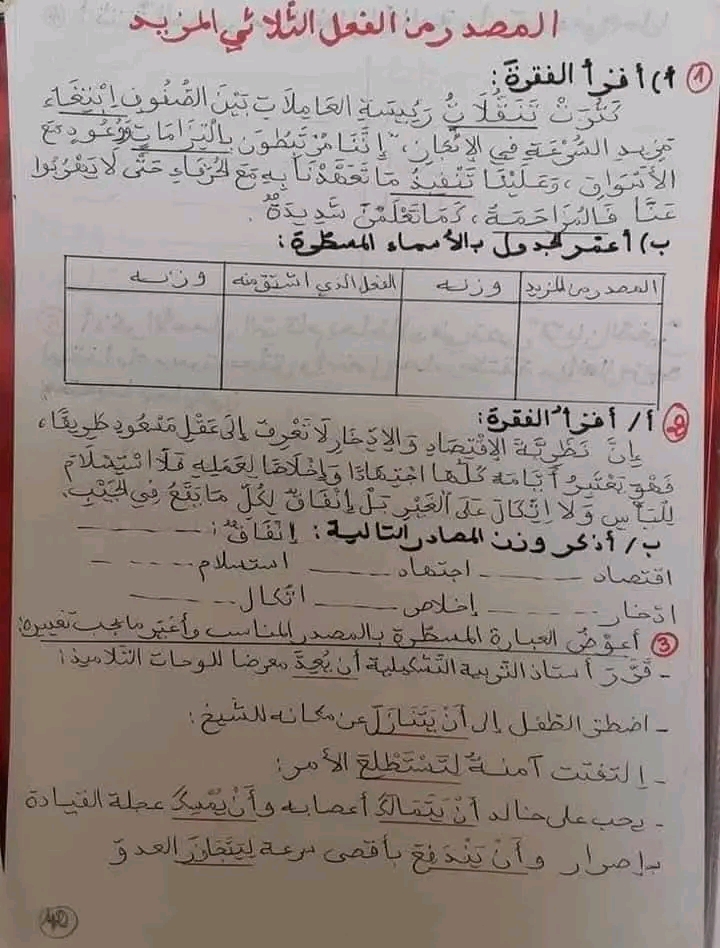 المصدر من الفعل الثلاثي المزيد
① أ) أقرأ الفقرة:
كَثُرَتْ تَنَقُّلَاتُ رَئِيسَةِ العَامِلَاتِ بَيْنَ الصُّفُوفِ اِبْتِغَاءَ
مَزِيدِ السُّرْعَةِ فِي الإِنْجَازِ، "إِنَّنَا مُرْتَبِطُونَ بِالْتِزَامَاتٍ وَوُعُودٍ مَعَ
الأَسْوَاقِ، وَعَلَيْنَا تَنْفِيذُ مَا تَعَهَّدْنَا بِهِ مَعَ الحُرَفَاءِ حَتَّى لَا يَهْرُبُوا
عَنَّا فَالمُزَاحَمَةُ، كَمَا تَعْلَمْنَ شَدِيدَةٌ".
ب) أعمّر الجدول بالأسماء المسطّرة:
المصدر من المزيد وزنه الفعل الذي اشتق منه وزنه
② أ/ أقرأ الفقرة:
إِنَّ نَظَرِيَّةَ الاِقْتِصَادِ وَالاِدِّخَارِ لَا تَعْرِفُ إِلَى عَقْلِ مَسْعُودٍ طَرِيقًا،
فَهْوَ يَعْتَبِرُ أَيَّامَهُ كُلَّهَا اجْتِهَادًا وَإِخْلَاصًا لِعَمَلِهِ فَلَا اسْتِسْلَامَ
لِلْيَأْسِ وَلَا اِتِّكَالَ عَلَى الغَيْرِ بَلْ إِنْفَاقٌ لِكُلِّ مَا يَقَعُ فِي الجَيْبِ.
ب/ أذكر وزن المصادر التالية: إِنْفَاقٌ: ------
اقتصاد ------ اجتهاد ------ استسلام ------
ادّخار ------ إخلاص ------ اتّكال ------
③ أعوّضُ العبارة المسطّرة بالمصدر المناسب وأغيّر ما يجب تغييره:
- قَرَّرَ أستاذ التربية التشكيلية أَنْ يُعِدَّ معرضا للوحات التلاميذ:
- اضطرّ الطّفل إلى أَنْ يَتَنَازَلَ عن مكانه للشيخ:
- اِلتفتت آمنةُ لِتَسْتَطْلِعَ الأمر:
- يجب على خالد أَنْ يَتَمَالَكَ أعصابه وأَنْ يُمْسِكَ عجلة القيادة
بإصرار وأَنْ يَنْدَفِعَ بأقصى سرعة لِيَتَجَاوَزَ العدوّ